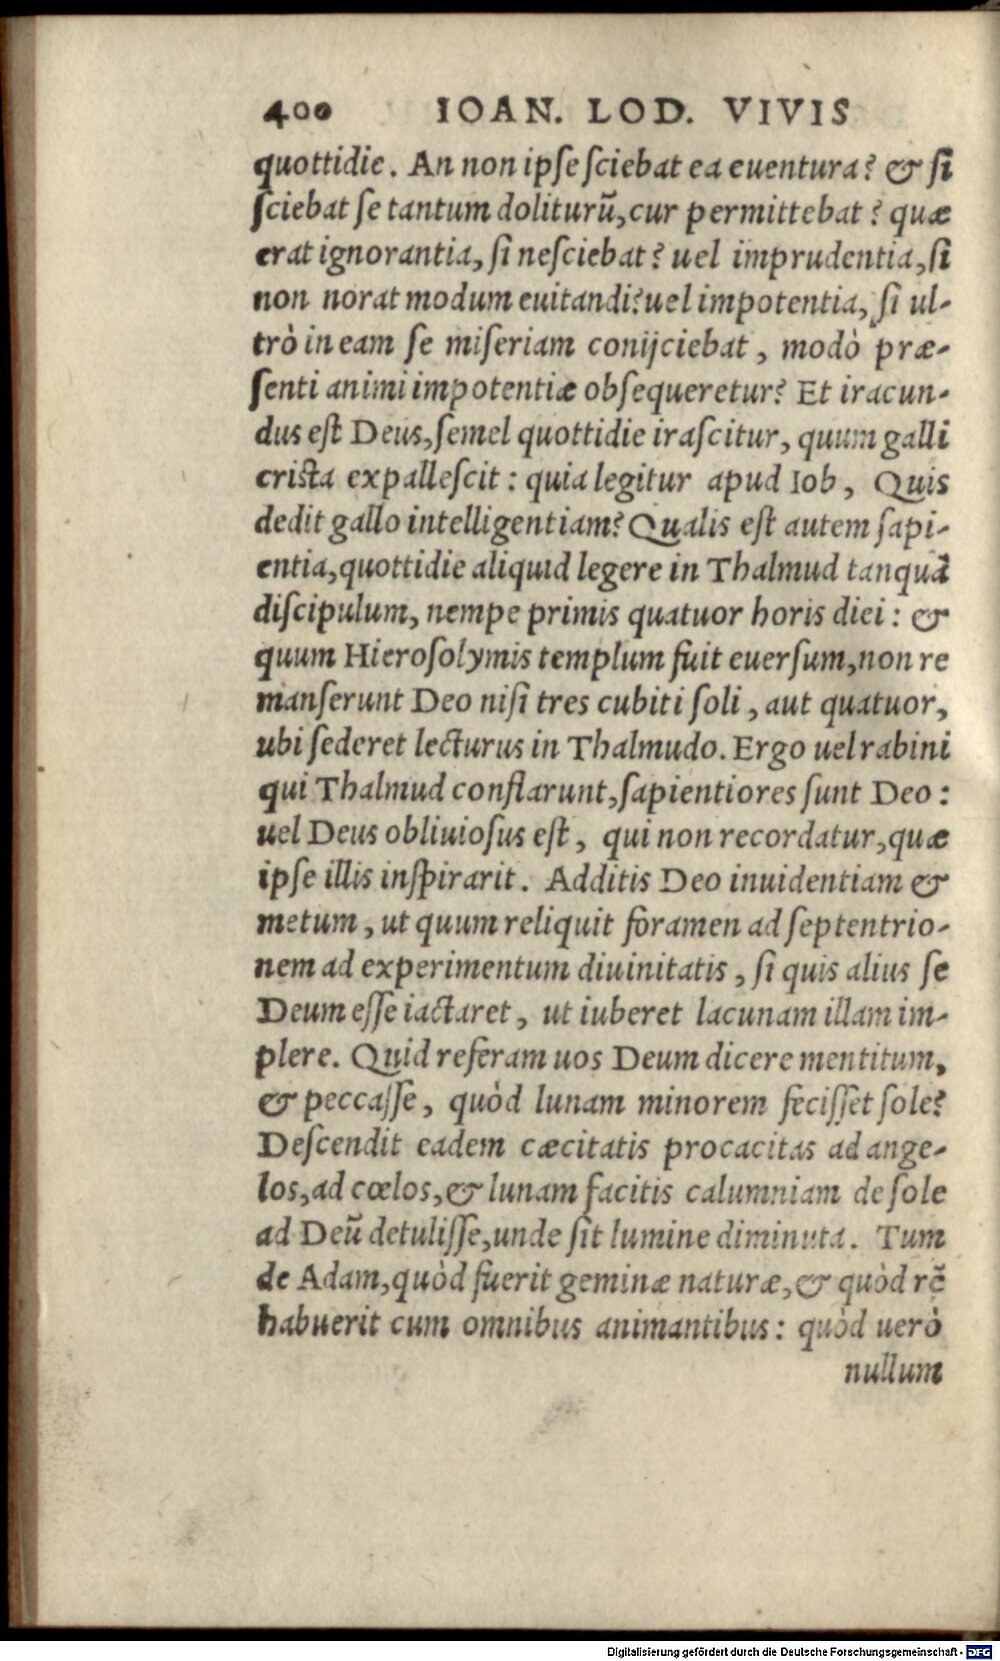 400 IOAN. LOD. VIVIS
quottidie. An non ipse sciebat ea euentura? & si
sciebat se tantum doliturū, cur permittebat? quæ
erat ignorantia, si nesciebat? uel imprudentia, si
non norat modum euitandi? uel impotentia, si ul-
trò in eam se miseriam conijciebat, modò præ-
senti animi impotentiæ obsequeretur? Et iracun-
dus est Deus, semel quottidie irascitur, quum galli
crista expallescit: quia legitur apud Iob, Quis
dedit gallo intelligentiam? Qualis est autem sapi-
entia, quottidie aliquid legere in Thalmud tanquā
discipulum, nempe primis quatuor horis diei: &
quum Hierosolymis templum fuit euersum, non re
manserunt Deo nisi tres cubiti soli, aut quatuor,
ubi sederet lecturus in Thalmudo. Ergo uel rabini
qui Thalmud conflarunt, sapientiores sunt Deo:
uel Deus obliuiosus est, qui non recordatur, quæ
ipse illis inspirarit. Additis Deo inuidentiam &
metum, ut quum reliquit foramen ad septentrio-
nem ad experimentum diuinitatis, si quis alius se
Deum esse iactaret, ut iuberet lacunam illam im-
plere. Quid referam uos Deum dicere mentitum,
& peccasse, quòd lunam minorem fecisset sole?
Descendit eadem cæcitatis procacitas ad ange-
los, ad cœlos, & lunam facitis calumniam de sole
ad Deū detulisse, unde sit lumine diminuta. Tum
de Adam, quòd fuerit geminæ naturæ, & quòd rē
habuerit cum omnibus animantibus: quòd uerò
nullum
Digitalisierung gefördert durch die Deutsche Forschungsgemeinschaft - DFG